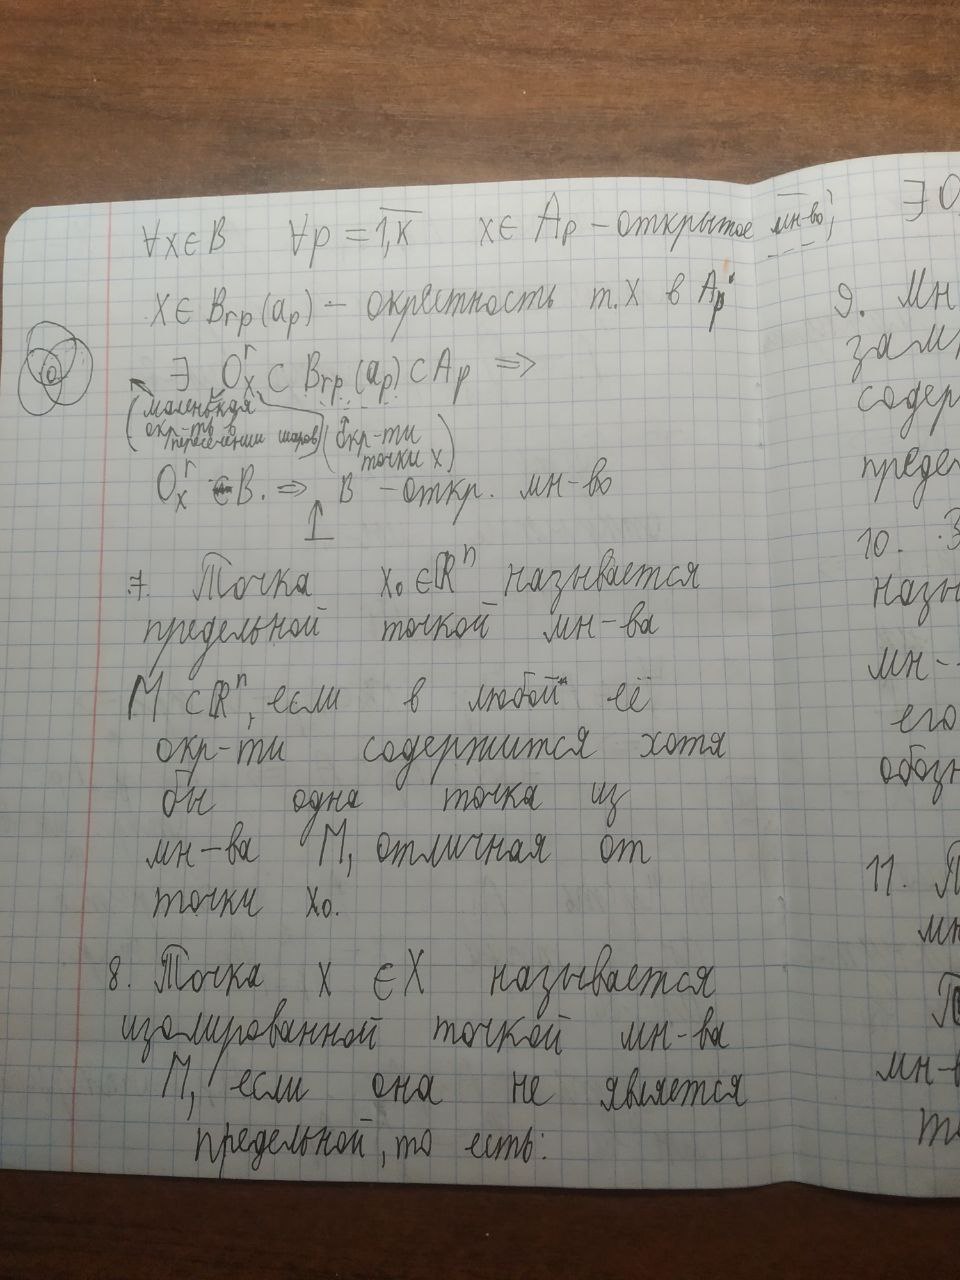 ∀x∈B ∀p = 1,k x∈ Ap – открытое мн-во;
x∈ Brp (ap) – окрестность т. x в Ap.
∃ Oxʳ ⊂ Brp (ap) ⊂ Ap ⇒
(маленькая окр-ть в пересечении шаров) (окр-ти точки x)
Oxʳ ⊂ B. ⇒ B – откр. мн-во
7. Точка x₀ ∈ ℝⁿ называется
предельной точкой мн-ва
M ⊂ ℝⁿ, если в любой её
окр-ти содержится хотя
бы одна точка из
мн-ва M, отличная от
точки x₀.
8. Точка x ∈ X называется
изолированной точкой мн-ва
M, если она не является
предельной, то есть:
∃ O
9. Мн
зам
содер
предел
10. З
назы
мн-
его
обозн
11. П
мн
П
мн-в